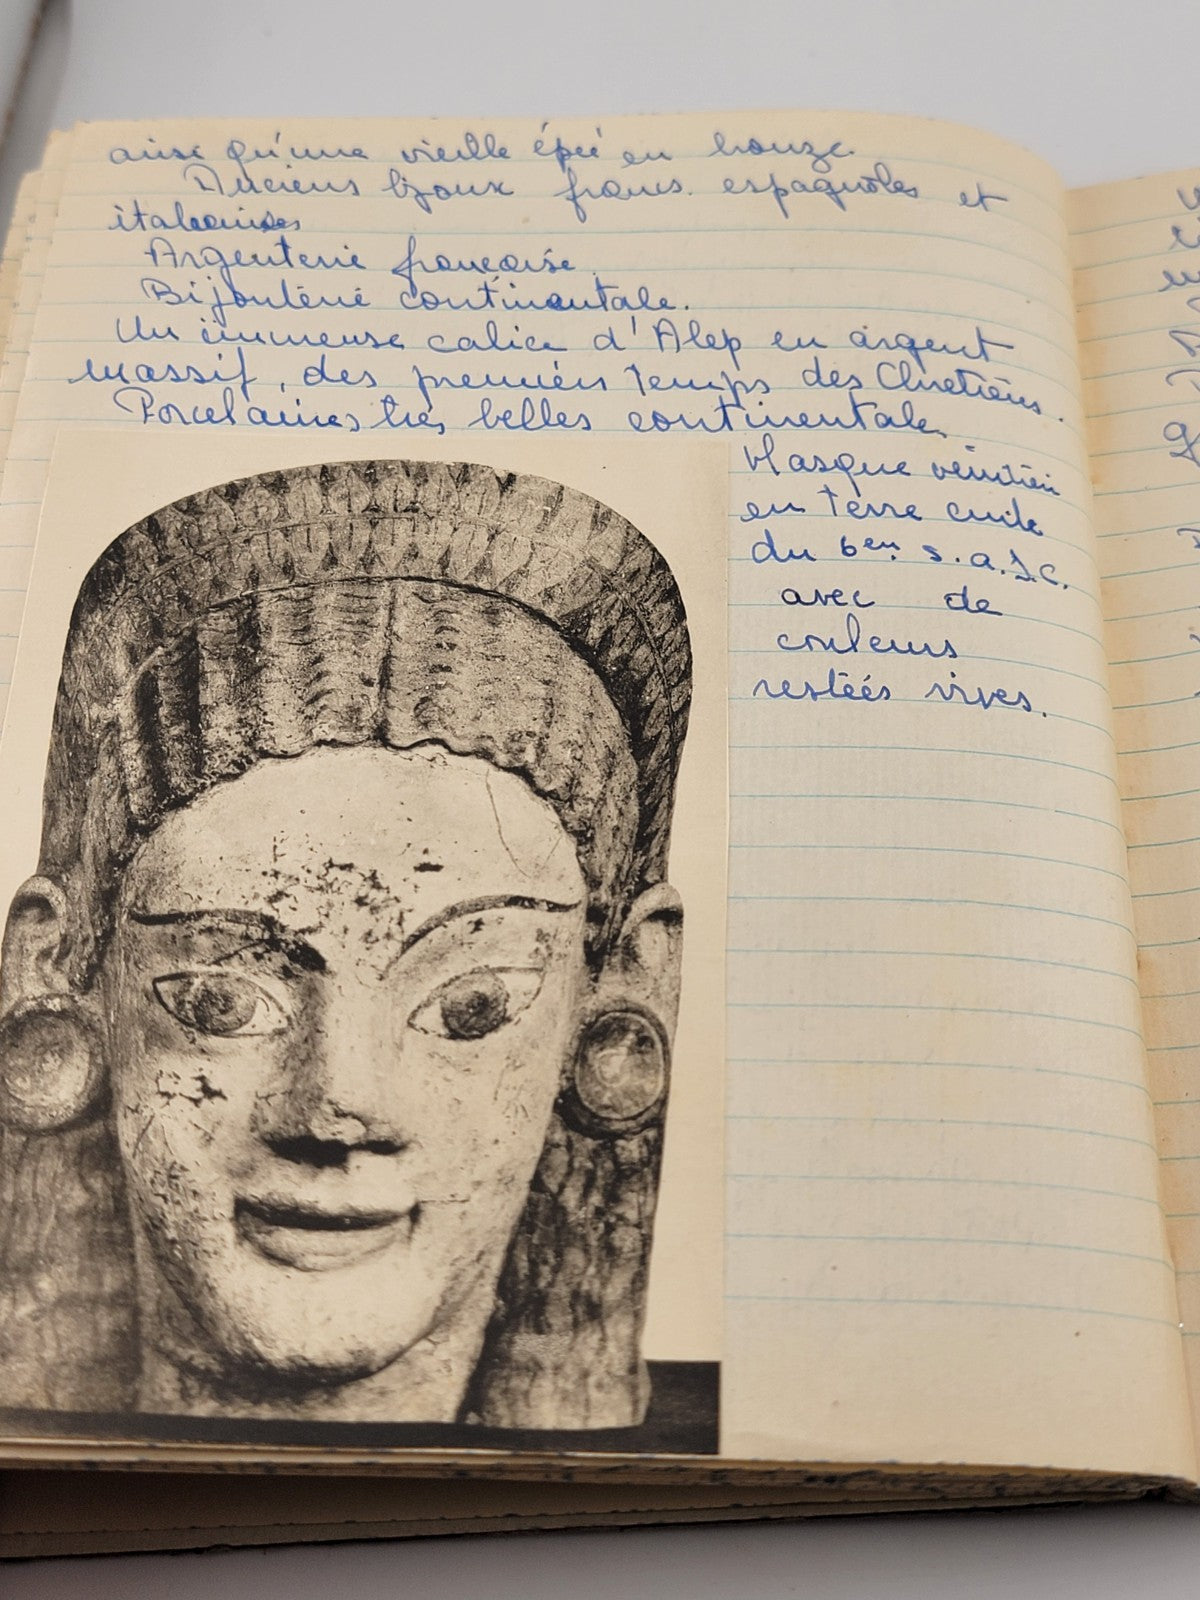 ainsi qu'une vieille épée en bronze.
Anciens bijoux francs. espagnoles et
italiennes
Argenterie française.
Bijouterie continentale.
Un immense calice d'Alep en argent
massif, des premiers temps des Chretiens.
Porcelaines très belles continentale.
Masque
en terre cuite
du 6em s.a.J.C.
avec de
couleurs
restées vives.